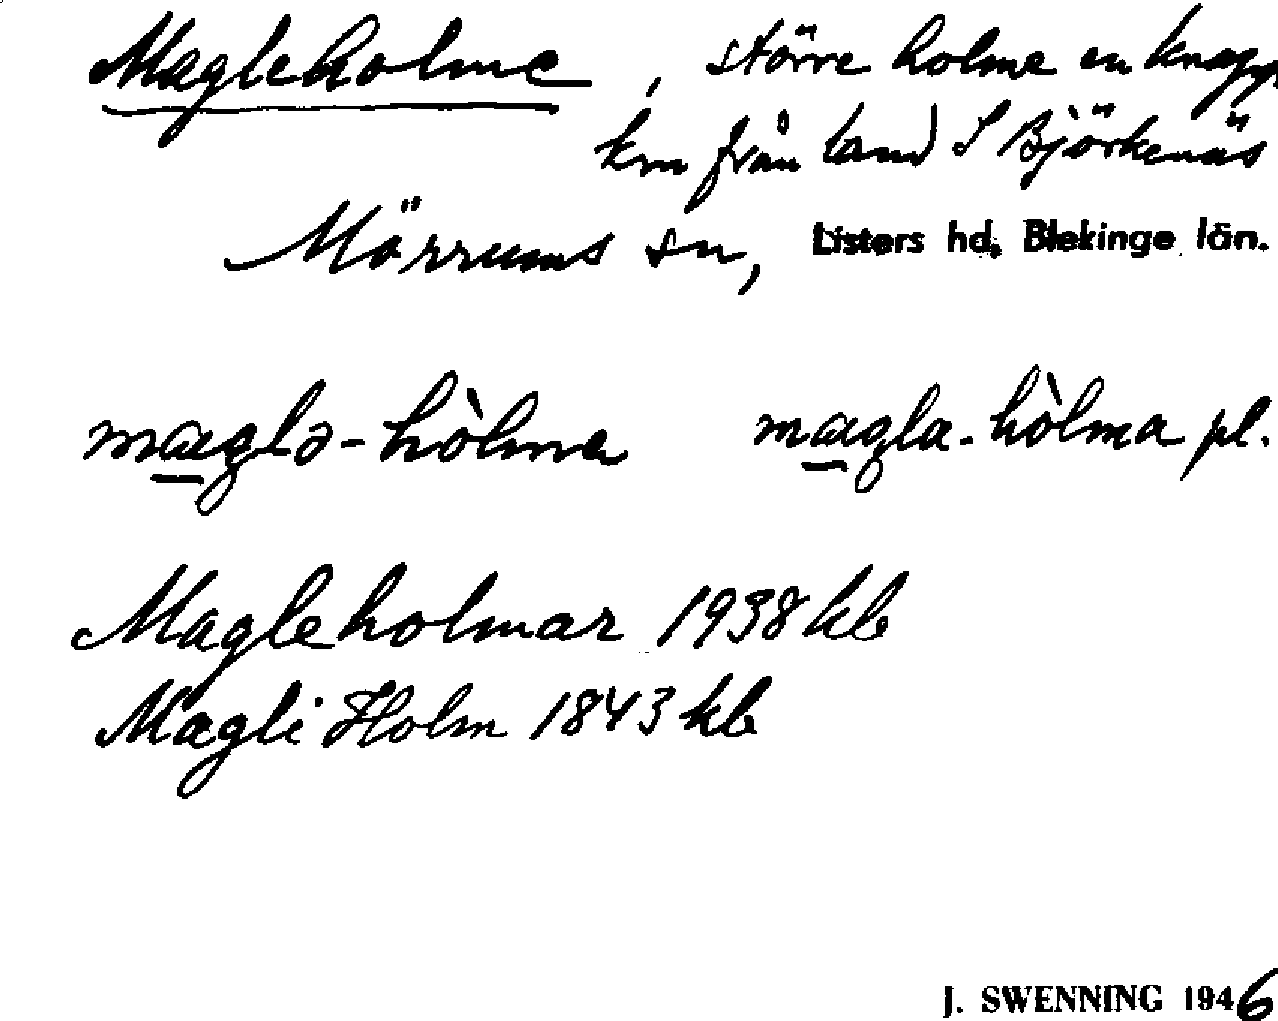 Magleholme, större holme en knapp
km från land S Björkenäs
Mörrums sn, Listers hd, Blekinge län.
maglə-hòlme magla-hòlma pl.
Magleholmar 1938 kb
Magli Holm 1843 kb
J. SWENNING 1946